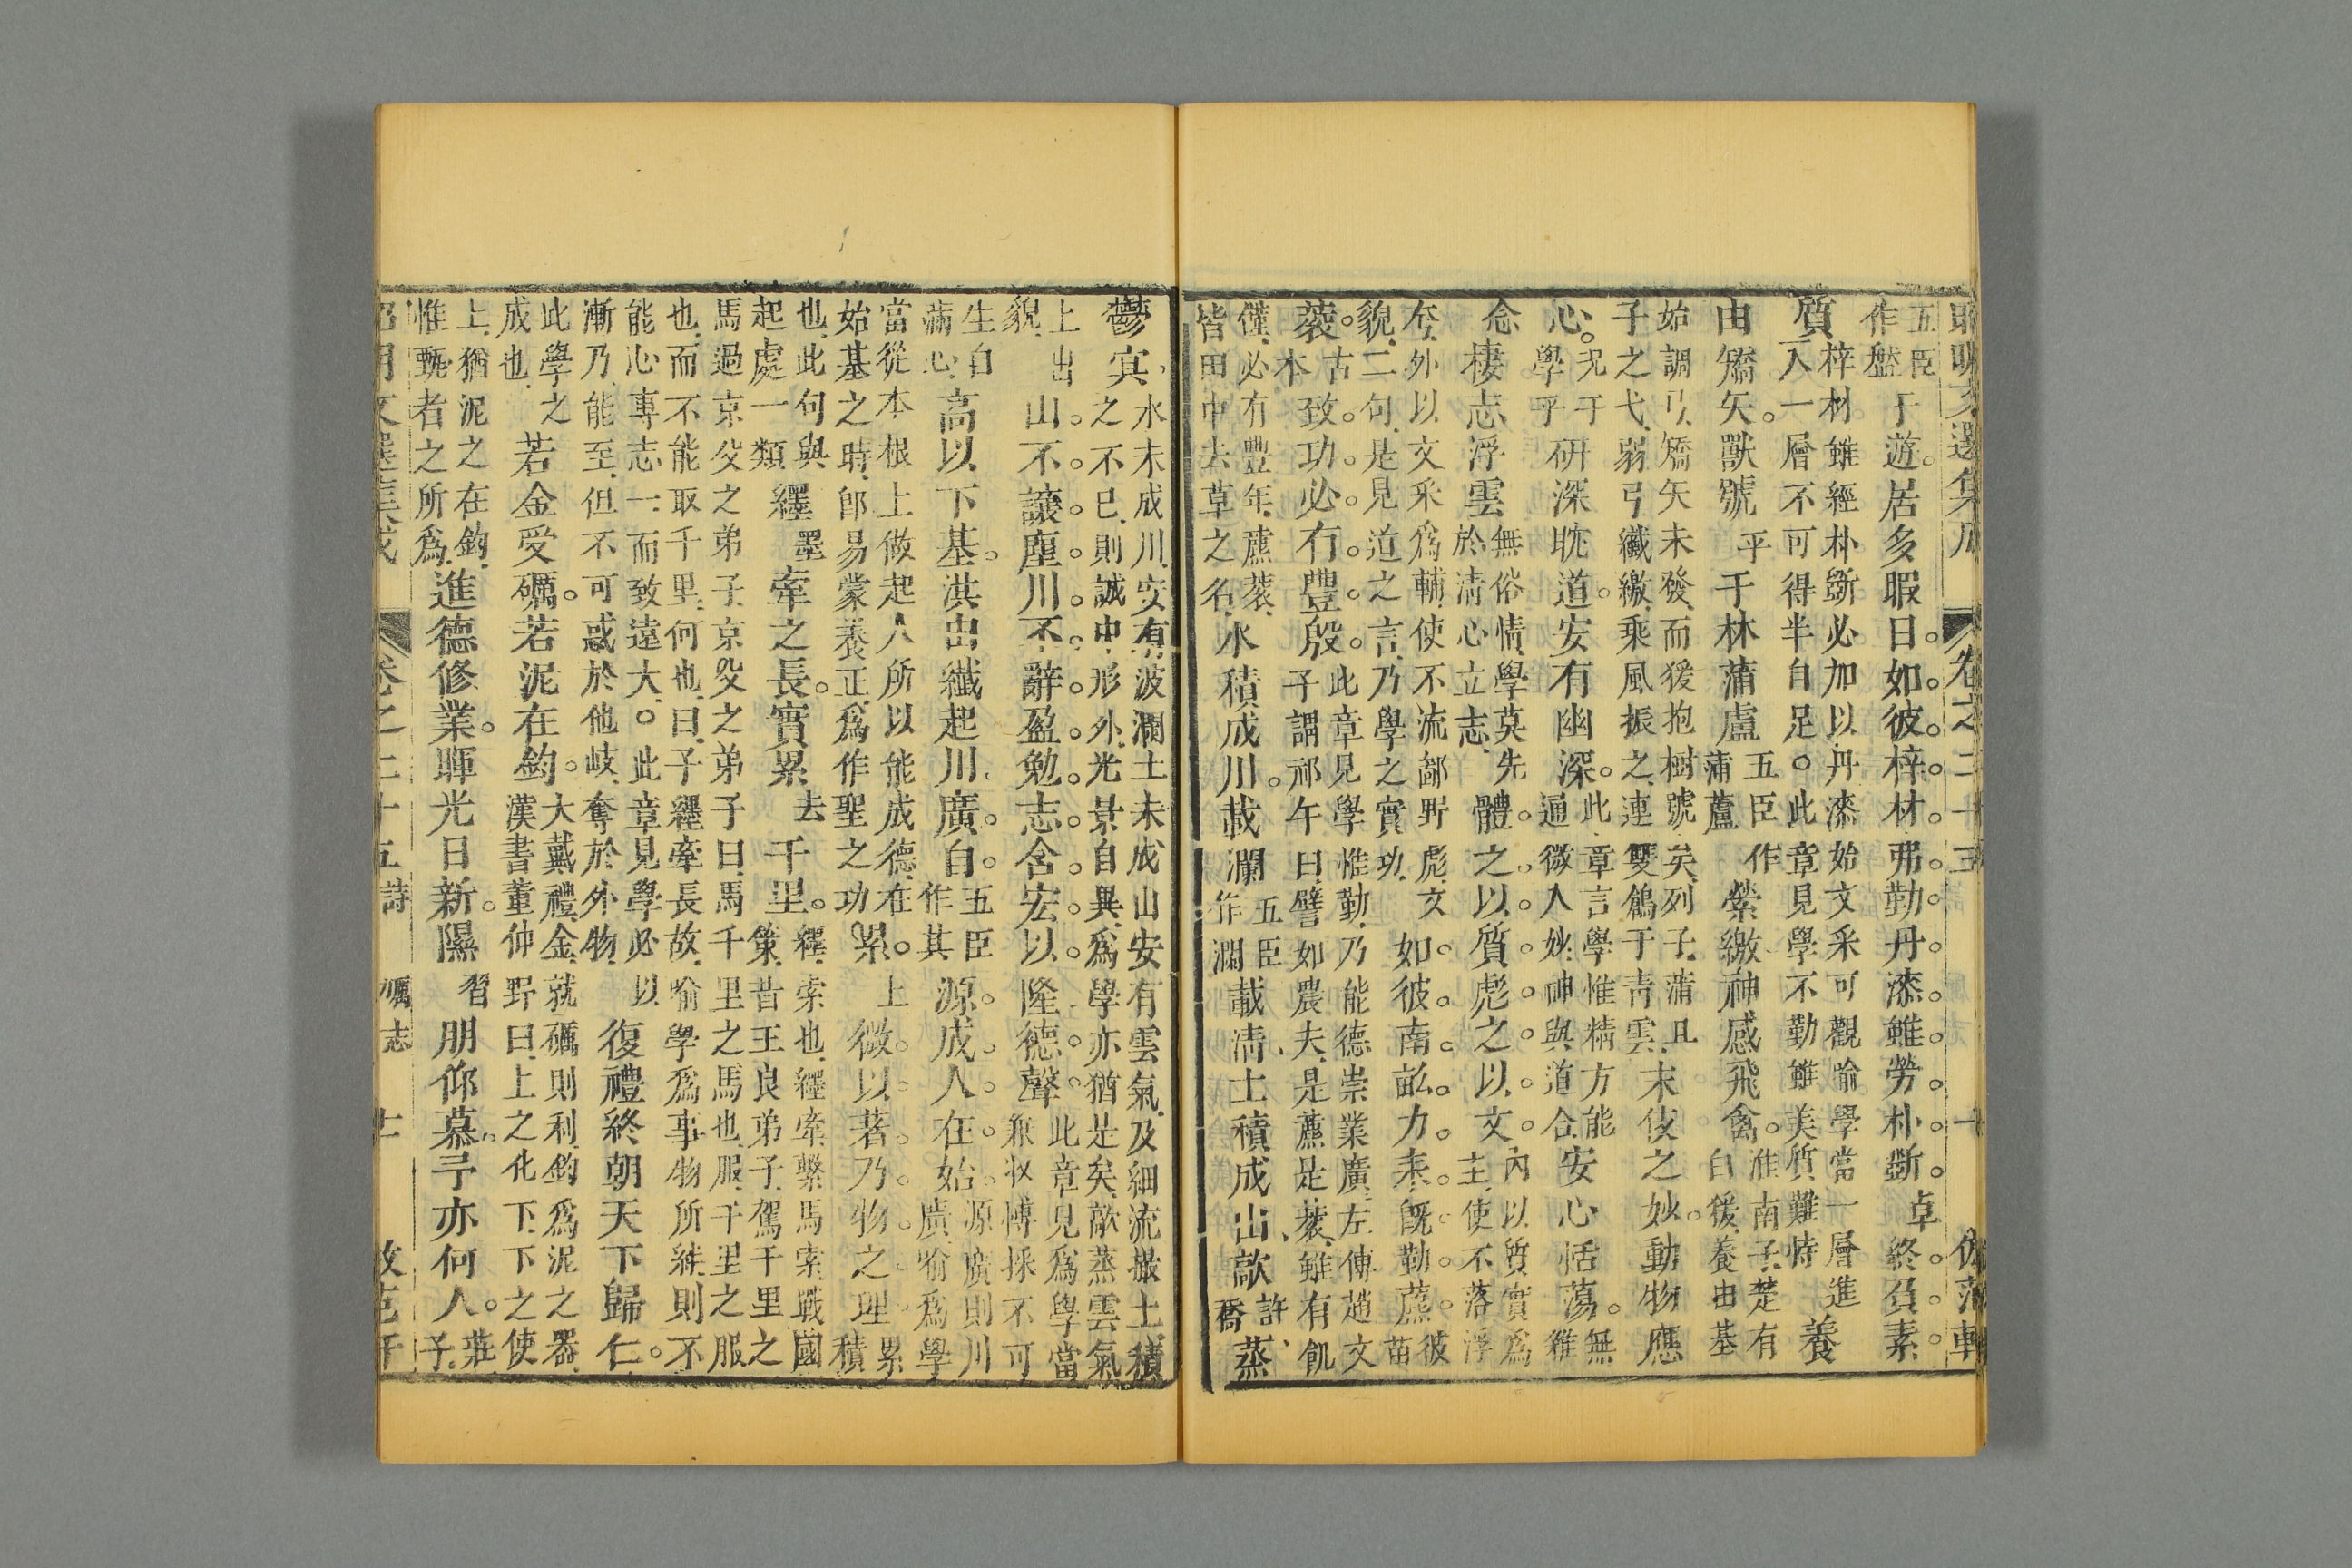 昭明文選集成 卷之二十三 十 仿范軒
五臣作盤于遊。居多暇日。如彼。梓。材。弗。勤。丹。漆。雖。勞。朴。斲。卓終。負。素。
質梓材雖經朴斲必加以丹漆始文采可觀喻學當一層進入一層不可得半自足○此章見學不勤雖美質難恃養
由矯矢。獸號平于林蒲盧五臣作蒲蘆縈繳神感飛禽。淮南子楚有白猨養由基
始調弓矯矢未發而猨抱樹號矣列子蒲且子之弋弱弓纖繳乘風振之連雙鶬于青雲末伎之妙。動物應
心。尤于學乎研深耽道。安有幽深。此章言學惟精方能通微入妙神與道合安心恬蕩。無雜
念棲志浮雲無俗情學莫先於清心立志體。之。以。質。彪。之。以。文。內以質實為主使不落浮
夸外以文采為輔使不流鄙野彪文貌二句是見道之言乃學之實功如。彼。南。畝。力。耒。既。勤。藨。彼苗
蔉。古本致。功。必。有。豐。殷。此章見學惟勤乃能德崇業廣左傳趙文子謂祁午曰譬如農夫是藨是蔉雖有飢
僅必有豐年藨蔉皆田中去草之名水積成川。載瀾五臣作瀾載清土積成山歊許喬蒸
鬱冥水未成川安有波瀾土未成山安有雲氣及細流撮土積之不已則誠中形外光景自異為學亦猶是矣歊蒸雲氣
上出貌山。不。讓。塵。川。不。辭。盈。勉。志。含。宏。以。隆。德。聲。此章見為學當兼收博採不可
生自滿心高以下基。洪由纖起川廣。自。五臣作其源。成。人。在。始。源廣則川廣喻為學
當從本根上做起人所以能成德在始基之時即易蒙養正為作聖之功累。上微。以。著。乃。物。之。理累積
也此句與起處一類纆墨牽之長。實累去千里。纆索也纆牽繫馬索戰國策昔王良弟子駕千里之
馬過京父之弟子京父之弟子曰馬千里之馬也服千里之服也而不能取千里何也曰子纆牽長故喻學為事物所絓則不
能心專志一而致遠大○此章見學必以漸乃能至但不可惑於他岐奪於外物復禮終朝天下歸仁。
此學之成也若金受礪。若泥在鈞。大戴禮金就礪則利鈞為泥之器漢書董仲野曰上之化下下之使
上猶泥之在鈞惟甄者之所為進德修業。暉光日新。隰習朋仰慕予亦何人。莊子
昭明文選集成 卷之二十五 詩 勵志